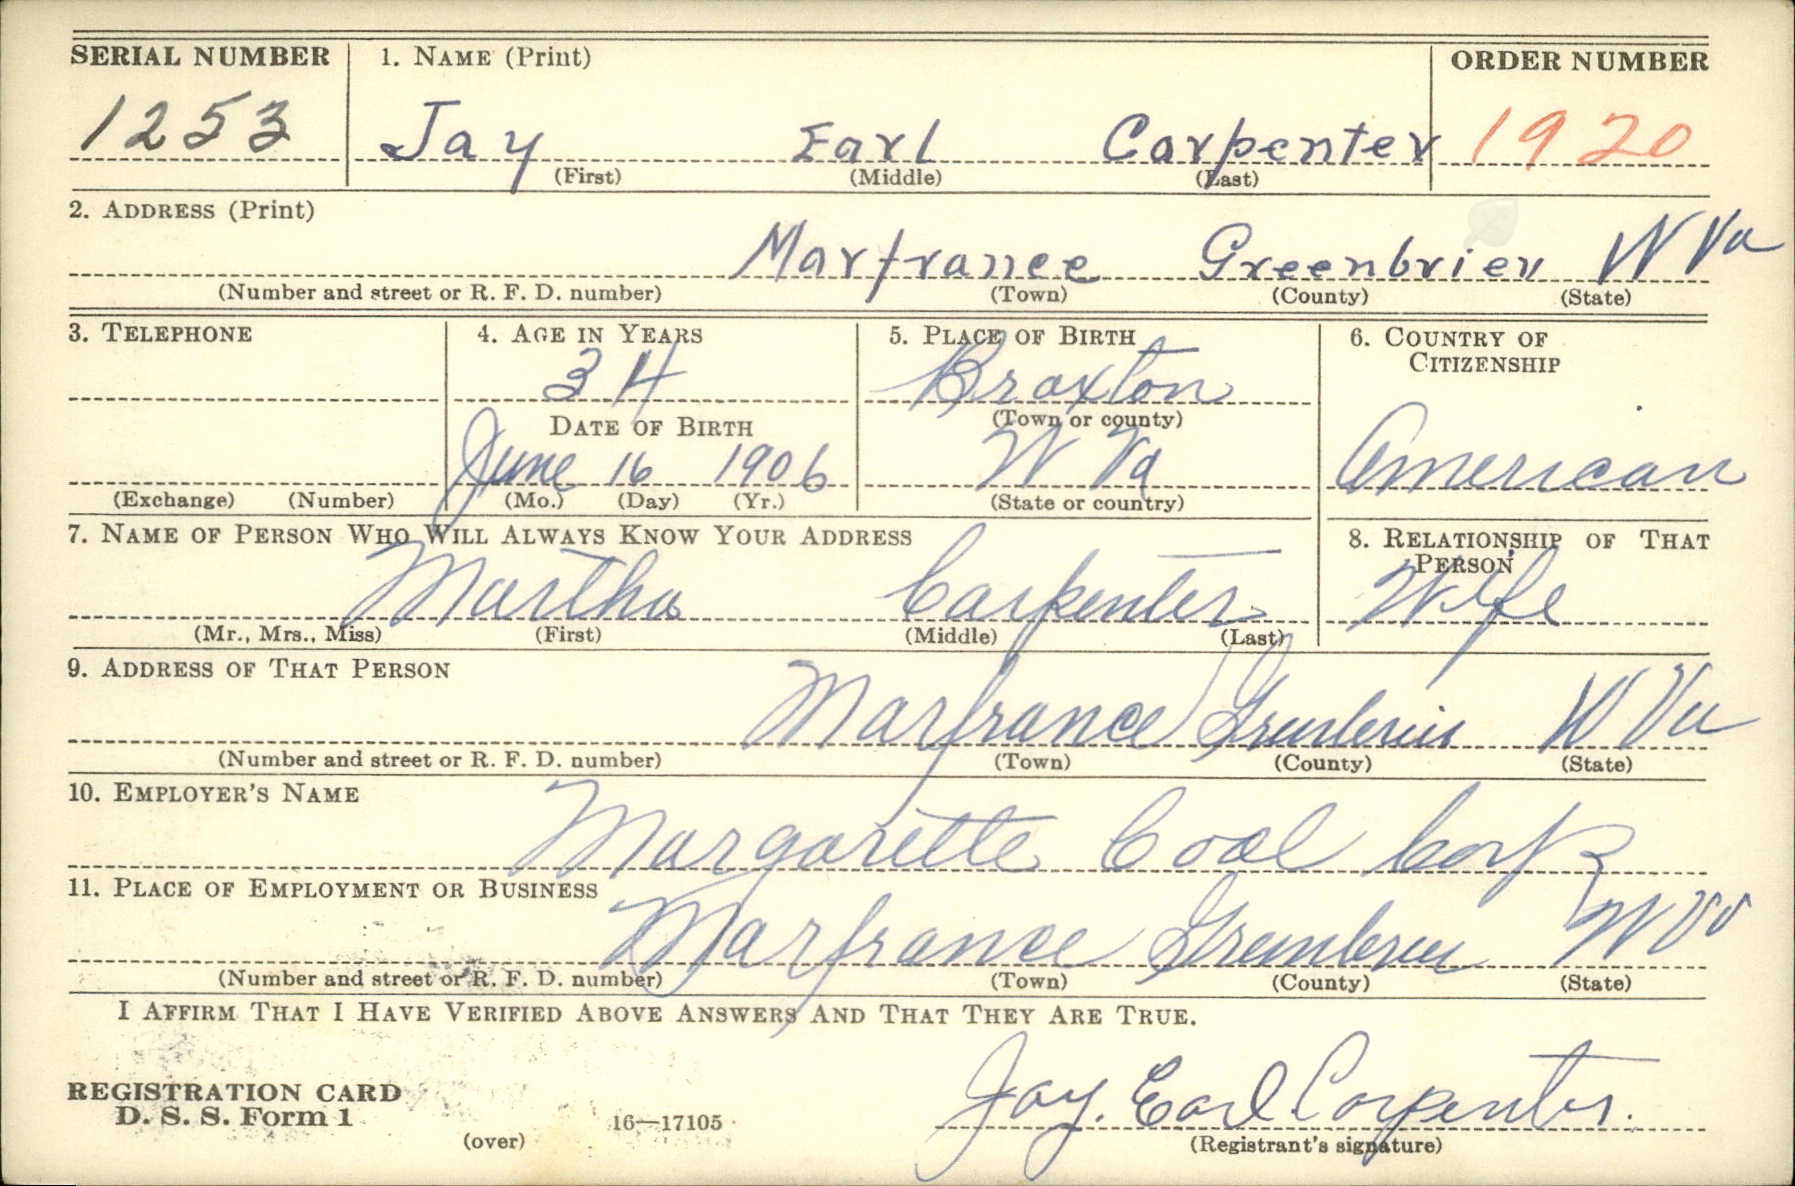 SERIAL NUMBER 1. NAME (Print) ORDER NUMBER
1253 Jay Earl Carpenter 1920
(First) (Middle) (Last)
2. ADDRESS (Print)
Marfrance Greenbrier W Va
(Number and street or R. F. D. number) (Town) (County) (State)
3. TELEPHONE 4. AGE IN YEARS 5. PLACE OF BIRTH 6. COUNTRY OF CITIZENSHIP
34 Braxton
DATE OF BIRTH (Town or county)
June 16 1906 W Va American
(Exchange) (Number) (Mo.) (Day) (Yr.) (State or country)
7. NAME OF PERSON WHO WILL ALWAYS KNOW YOUR ADDRESS 8. RELATIONSHIP OF THAT PERSON
Martha Carpenter Wife
(Mr., Mrs., Miss) (First) (Middle) (Last)
9. ADDRESS OF THAT PERSON
Marfrance Greenbrier W Va
(Number and street or R. F. D. number) (Town) (County) (State)
10. EMPLOYER'S NAME
Margarette Coal Corp
11. PLACE OF EMPLOYMENT OR BUSINESS
Marfrance Greenbrier W Va
(Number and street or R. F. D. number) (Town) (County) (State)
I AFFIRM THAT I HAVE VERIFIED ABOVE ANSWERS AND THAT THEY ARE TRUE.
REGISTRATION CARD
D. S. S. Form 1 16—17105 Jay. Earl Carpenter.
(over) (Registrant's signature)